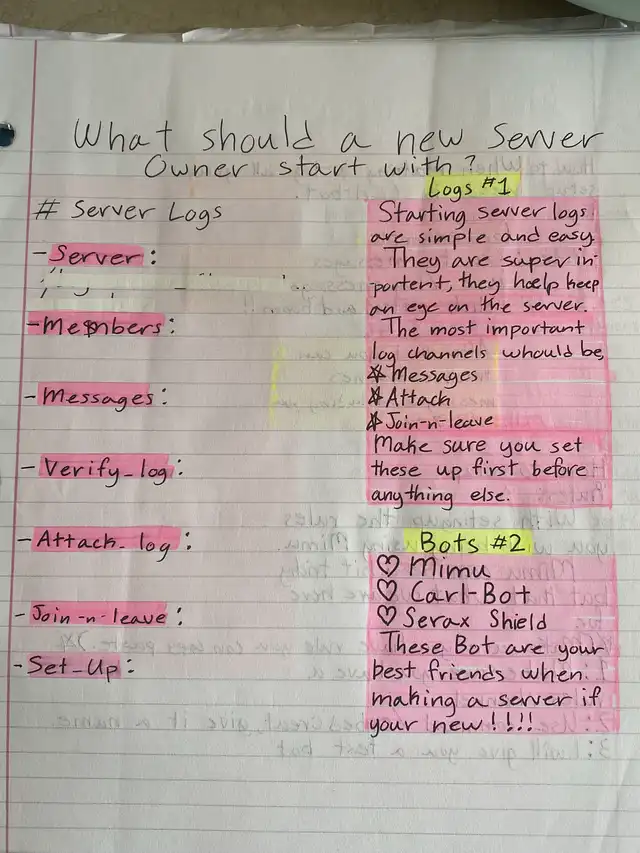 What should a new Server
Owner start with?
# Server Logs
- Server:
- Members:
- Messages:
- Verify_log:
- Attack_log:
- Join-n-leave:
- Set_Up:
Logs #1
Starting server logs
are simple and easy.
They are super in-
portent, they hoelp keep
an eye on the server.
The most important
log channels whould be,
☆ Messages
☆ Attack
☆ Join-n-leave
Make sure you set
these up first before
anything else.
Bots #2
♡ Mimu
♡ Carl-Bot
♡ Serax Shield
These Bot are your
best friends when
making a server if
your new!!!!